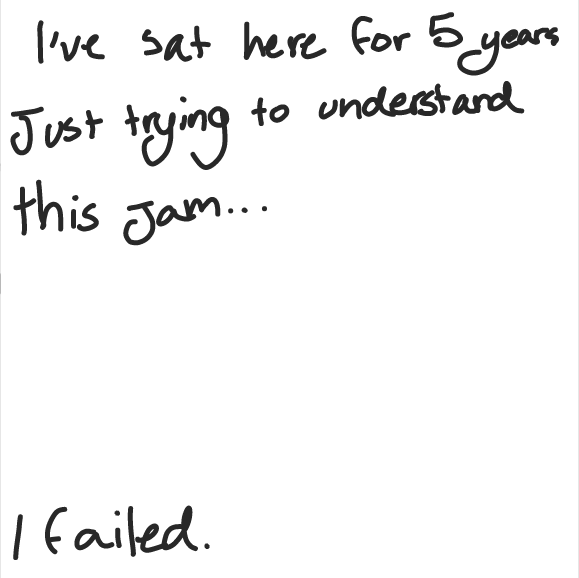 I've sat here for 5 years
Just trying to understand
this Jam...
I failed.